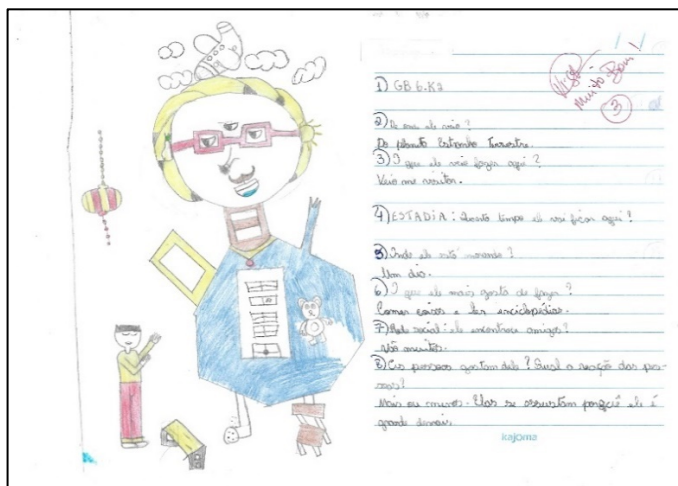 Muito Bom!
3
1) GB 6.K7
2) De onde ele veio?
Do planeta Estranho Terrestre.
3) O que ele veio fazer aqui?
Veio me visitar.
4) ESTADIA: Quanto tempo ele vai ficar aqui?
5) Onde ele está morando?
Um dia.
6) O que ele mais gosta de fazer?
Comer coisas e ler enciclopédias.
7) social: ele encontrou amigos?
Não muitos.
8) As pessoas gostam dele? Qual a reação das pes-
soas?
Mais ou menos. Elas se assustam porque ele é
grande demais
kajoma